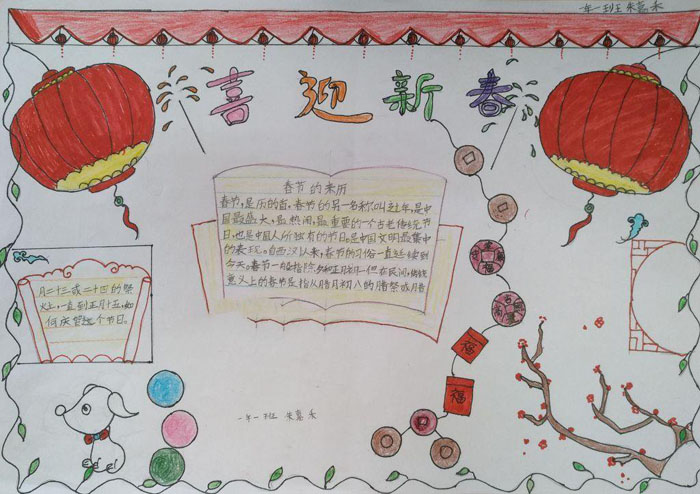 一年一班 朱嘉禾
喜迎新春
春节的来历
春节,是历的首,春节的另一名称叫过年,是中
国最盛大,最热闹,最重要的一个古老传统节
日,也是中国人所独有的节日。是中国文明最集中
的表现。自西汉以来,春节的习俗一直延续到
今天。春节一般指除夕和正月初一但在民间,传统
意义上的春节是指从腊月初八的腊祭或腊
月二十三或二十四的祭
灶,一直到正月十五,如
何庆贺这个节日。
福
福
一年一班 朱嘉禾